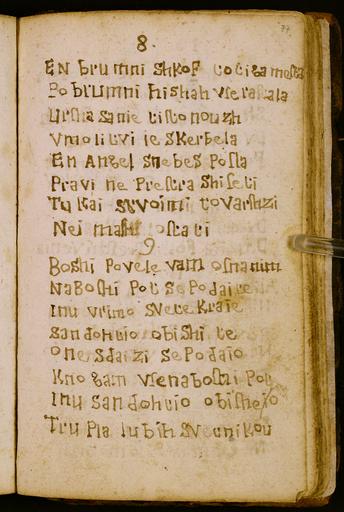 8.
EN brumni ShKoF
Po brumni hishah vserastala
Ursha Sanie
Vmolitvi ie SKerbela
En Angel SnebeS PoSla
Pravi ne PreStra ShiSeti
Tu Kai Stvoimi tovarshzi
Nei maSh oStati
9
Boshi Povele vam oSnanim
NaBoshi Pot Se Podaite
Inu vrimo Svete Kraie
Sandohtio obiShi te
Oneſdaizi Se Podaio
Kno gam vſenaboshi Pot
Inu Sandohtio obishejo
Tru Pla lubih Svetnikou